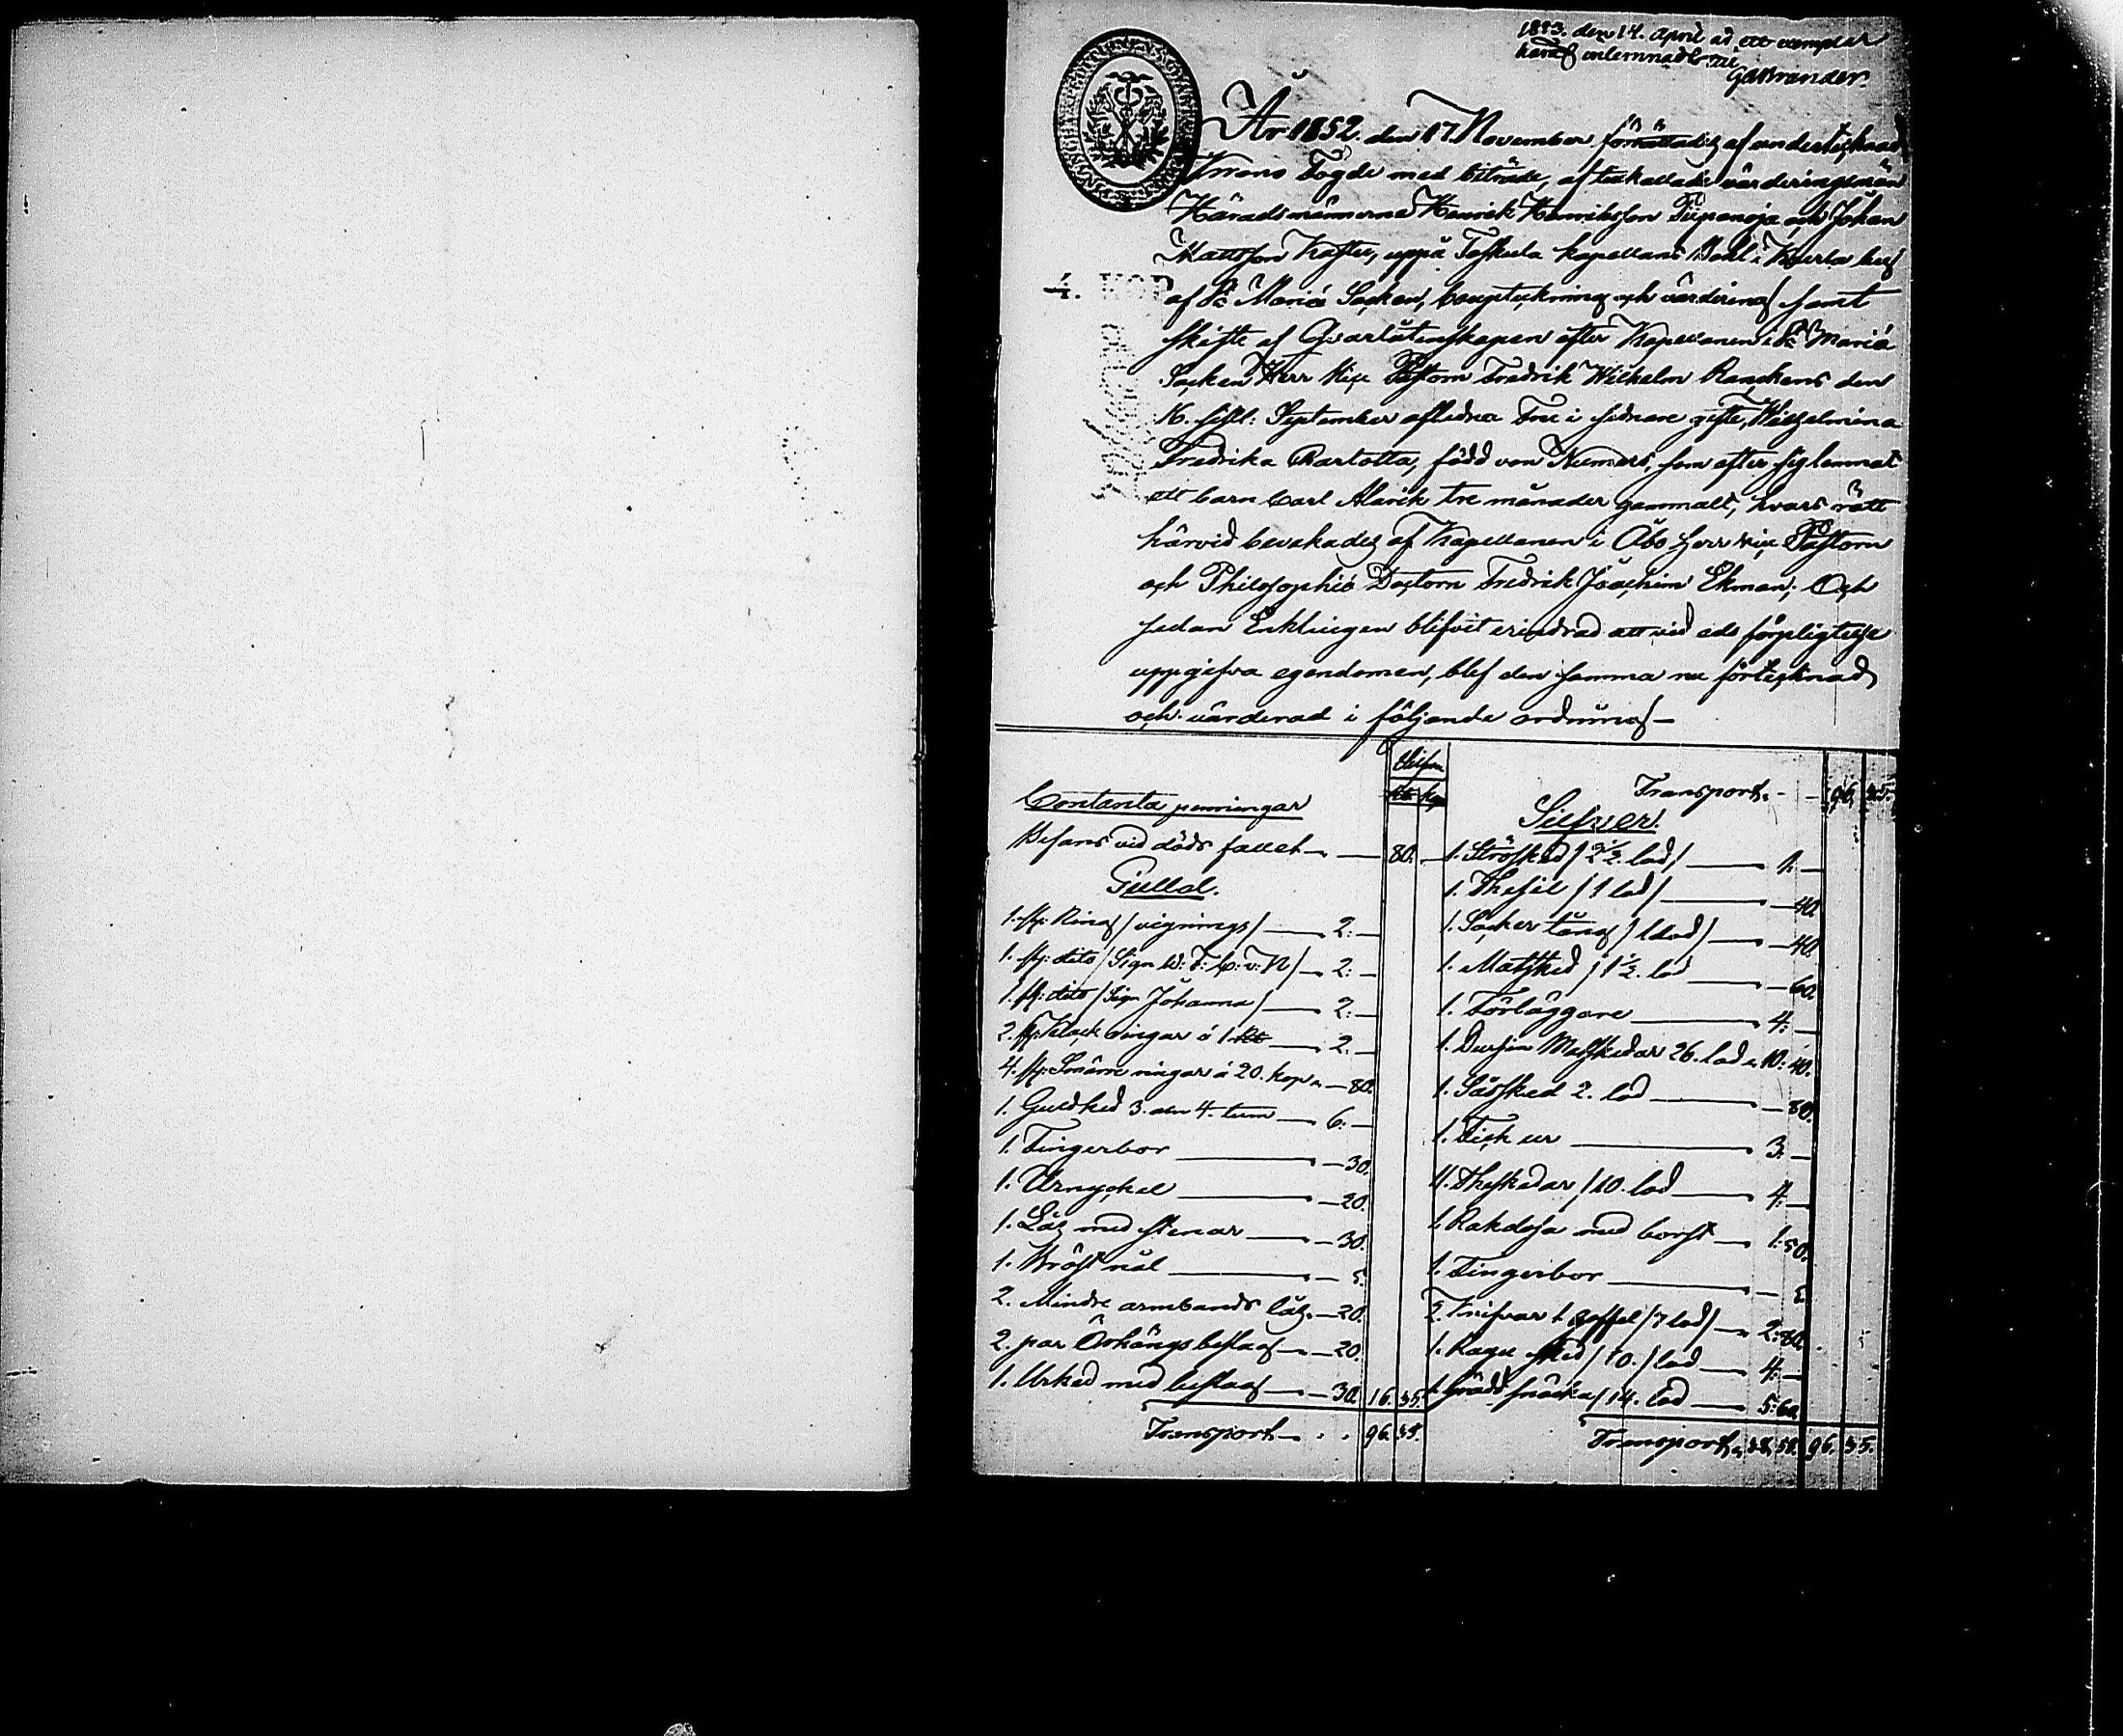 1853. den 14. April är ett exemplar
häraf inlemnadt till
GABrander.
År 1852. den 17 November förrättades af undertecknad
Krono Fogde med biträde, af tillkallade värderingsmän
Häradsmännerne Henrik Henriksson Piipanoja och Johan
Mattsson Kaster, uppå Toskula kapellans Bohl i Kaerla by
4. KOP
af S:t Mariæ Socken, bouptekning och värdering samt
skifte af Qvarlåtenskapen efter Kapellanen i S:t Mariæ
Socken Herr Vice Pastorn Fredrik Wilhelm Ranckens den
16. sistl: September aflidna Fru i sednare gifte, Wilhelmina
Fredrika Charlotta, född von Numers, som efter sig lemnat
ett barn Carl Alarik tre månader gammalt, hvars rätt
härvid bevakades af Kapellanen i Åbo Herr Vice Pastorn
och Philosophiæ Doctorn Fredrik Joachim Ekman; Och
sedan Enklingen blifvit erindrad att vid eds förpligtelse
uppgifva egendomen, blef den samma nu förtecknad
och värderad i följande ordning
Silfver
Rub. Kop
Contanta penningar
Befans vid döds fallet — 80. —
Guld.
1. st: Ring /vignings/ — 2: —
1. st: dito /Sign W: F: C: v: N/ — 2: —
1. st: dito /Sign Johanna/ — 2: —
2. st: Klack ringar á 1 Rub — 2: —
4. st: Smärre ringar á 20. kop — 80.
1. Guldked 3. den 4. tum — 6: —
1. Fingerbor — 30.
1. Urnyckel — 20.
1. Lås med stenar — 30.
1. Bröst nål — 5.
2. Mindre armbands lås — 20.
2. par Örhängs beslag — 20.
1. Urked med beslag — 30. 16. 35.
Transport — 96. 35.
Transport — 96. 35.
Silfver.
1. Strösked /2 1/2. lod/ — 1: —
1. Thesil /1 lod/ — 40.
1. Socker tång /1 lod/ — 40.
1. Matsked /1 1/2. lod — 60.
1. Förläggare — 4: —
1. Dussin Matskedar 26. lod — 10: 40.
1. Såssked 2. lod — 80.
1. Fick ur — 3: —
11. Theskedar /10. lod — 4: —
1. Rakdosa med borst — 1: 50.
1. Fingerbor — 5.
2. Knifvar 1. gaffel /7 lod/ — 2: 80.
1. Ragu sked /10./ lod — 4: —
1. Grädd snäcka /14. lod — 5: 60.
Transport — 38. 55. 96. 35.